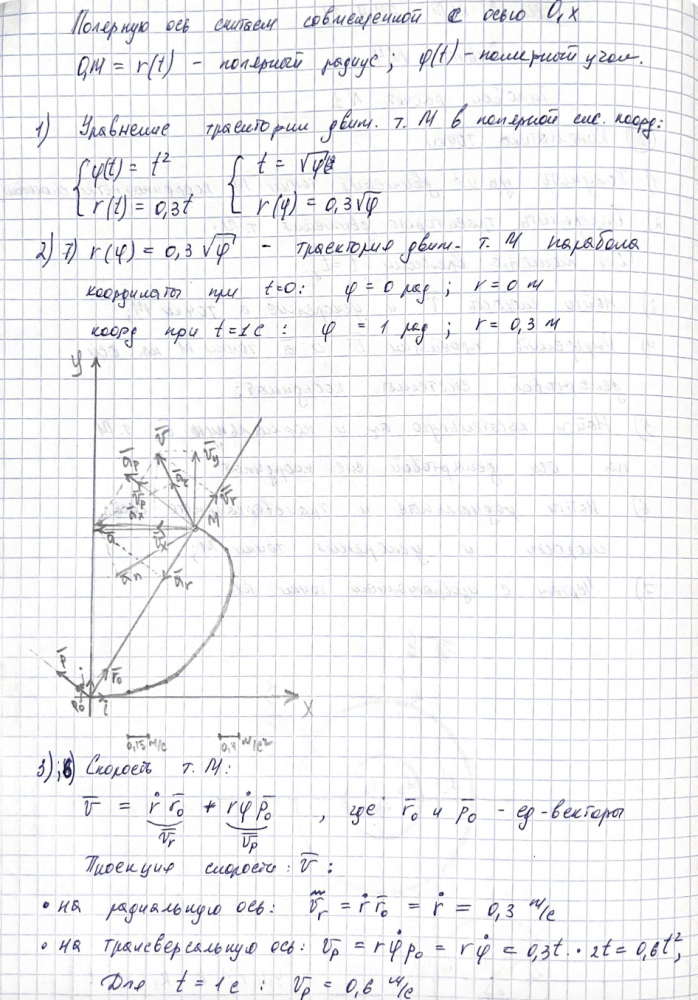 Полярную ось считаем совмещенной с осью O₁x
O₁M = r(t) - полярный радиус; φ(t) - полярный угол.
1) Уравнение траектории движ. т. М в полярной сис. коорд:
{ φ(t) = t² { t = √φ
r(t) = 0,3t r(φ) = 0,3√φ
2) 7) r(φ) = 0,3√φ - траектория движ. т. М парабола
координаты при t=0: φ = 0 рад ; r = 0 м
коорд при t=1с : φ = 1 рад ; r = 0,3 м
y
v̄
v̄y
āp
āτ
v̄p
v̄r
āx
M
ā
v̄x
ān
ār
p̄
r̄₀
p̄₀
j̄
ī
x
0,15 м/с 0,4 м/с²
3); 6) Скорость т. М:
v̄ = ṙ r̄₀ + rφ̇ p̄₀ , где r̄₀ и p̄₀ - ед-векторы
v̄r v̄p
Проекция скорости v̄ :
• на радиальную ось: v̄r = ṙ r̄₀ = ṙ = 0,3 м/с
• на трансверсальную ось: v̄p = rφ̇ p₀ = rφ̇ = 0,3t · 2t = 0,6t²,
Для t = 1 с : v̄p = 0,6 м/с